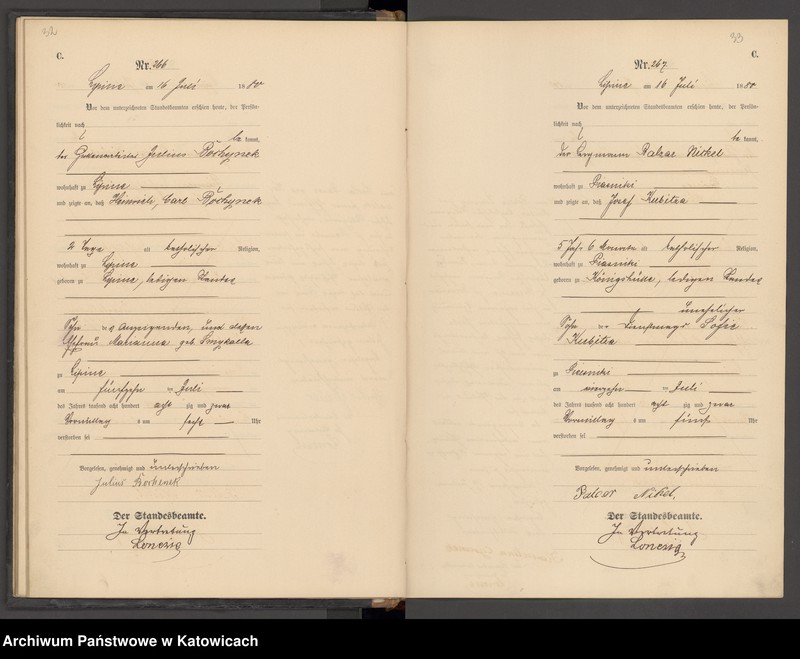 32
C.
Nr. 266
Lipine am 16 Juli 1880
Vor dem unterzeichneten Standesbeamten erschien heute, der Persön-
lichkeit nach
be kannt,
der Julius Rochynek
wohnhaft zu Lipine
und zeigte an, daß Heinrich, Carl Rochynek
2 Tage alt katholischer Religion,
wohnhaft zu Lipine
geboren zu Lipine, ledigen Standes
Sohn des Anzeigenden, und dessen
Ehefrau Marianna geb.
zu Lipine
am fünfzehn ten Juli
des Jahres tausend acht hundert acht zig und zwar
Vormittag s um sechs Uhr
verstorben sei
Vorgelesen, genehmigt und unterschrieben
Julius
Der Standesbeamte.
In Vertretung
33
C.
Nr. 267
Lipine am 16 Juli 1880
Vor dem unterzeichneten Standesbeamten erschien heute, der Persön-
lichkeit nach
be kannt,
der Bergmann Balzar Nickel
wohnhaft zu Piasniki
und zeigte an, daß Josef Kubitza
5 Jahr 6 Monate alt katholischer Religion,
wohnhaft zu Piasniki
geboren zu Königshütte, ledigen Standes
unehelicher
Sohn der Dienstmagd Sofie
Kubitza
zu Piasniki
am vierzehn ten Juli
des Jahres tausend acht hundert acht zig und zwar
Vormittag s um fünf Uhr
verstorben sei
Vorgelesen, genehmigt und unterschrieben
Nikel,
Der Standesbeamte.
In Vertretung
Archiwum Państwowe w Katowicach